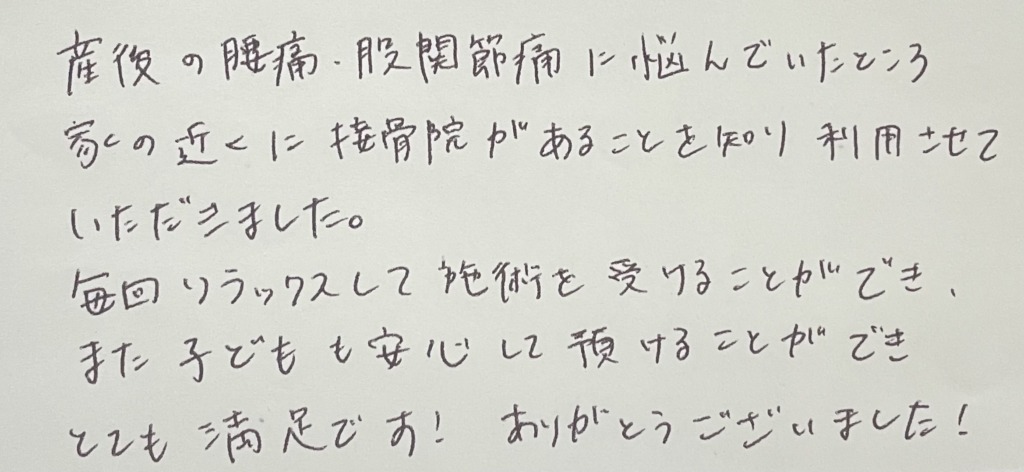 産後の腰痛・股関節痛に悩んでいたところ
家の近くに接骨院があることを知り 利用させて
いただきました。
毎回リラックスして施術を受けることができ、
また子どもも安心して預けることができ
とても満足です！ ありがとうございました！